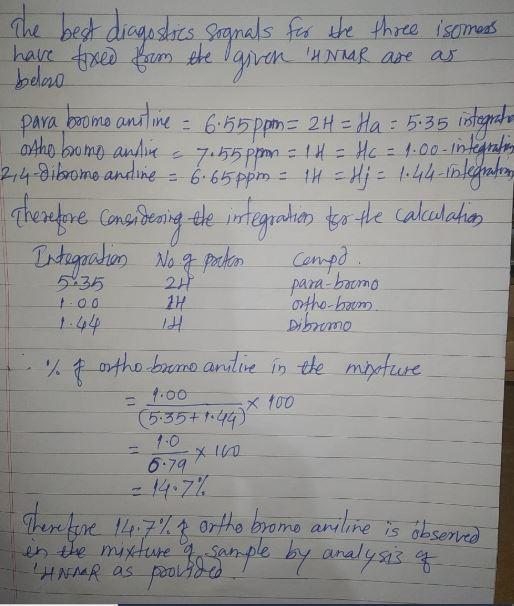 The best diagostics sognals for the three isomers
have fixed from the given ¹HNMR are as
below
para bromo aniline = 6.55ppm = 2H = Ha = 5.35 integratn
ortho bromo anilin = 7.55ppm = 1H = Hc = 1.00-integration
2,4-dibromo aniline = 6.65ppm = 1H = Hj = 1.44-integration
Therefore Considering the integration for the calculation
Integration No of proton Compd.
5.35 2H para-bromo
1.00 1H ortho-brom.
1.44 1H Dibromo
∴ % of ortho-bromo aniline in the mixture
= 1.00 / (5.35+1.44) × 100
= 1.0 / 6.79 × 100
= 14.7%
Therefore 14.7% of ortho bromo aniline is observed
in the mixture of sample by analysis of
¹HNMR as provided.